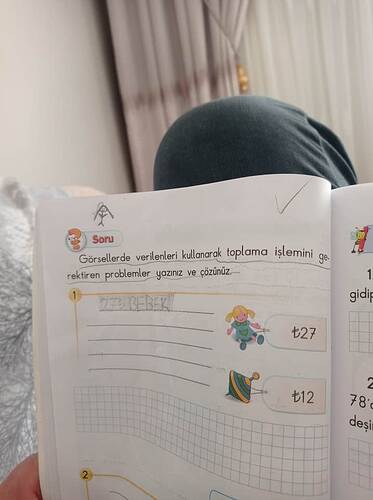 Soru
Görsellerde verilenleri kullanarak toplama işlemini ge-
rektiren problemler yazınız ve çözünüz.
1
BEBEK
₺27
₺12
2
1.
gidip
2
78'
deşin